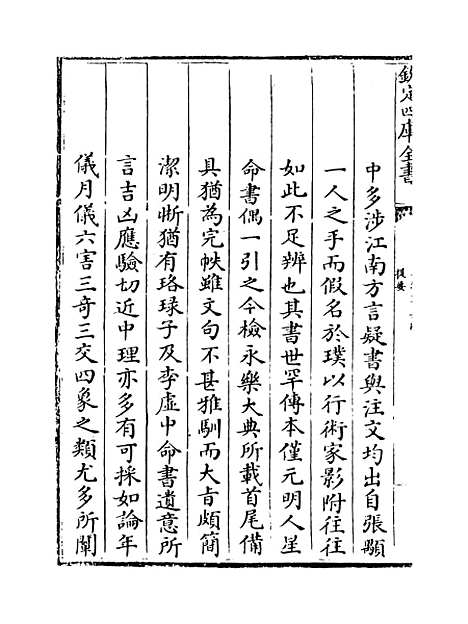 欽定四庫全書
提要
中多涉江南方言疑書與注文均出自張顒
一人之手而假名於璞以行術家影附往往
如此不足辨也其書世罕傳本僅元明人星
命書偶一引之今檢永樂大典所載首尾備
具猶為完帙雖文句不甚雅馴而大旨頗簡
潔明晰猶有珞琭子及李虛中命書遺意所
言吉凶應驗切近中理亦多有可採如論年
儀月儀六害三奇三交四象之類尤多所闡